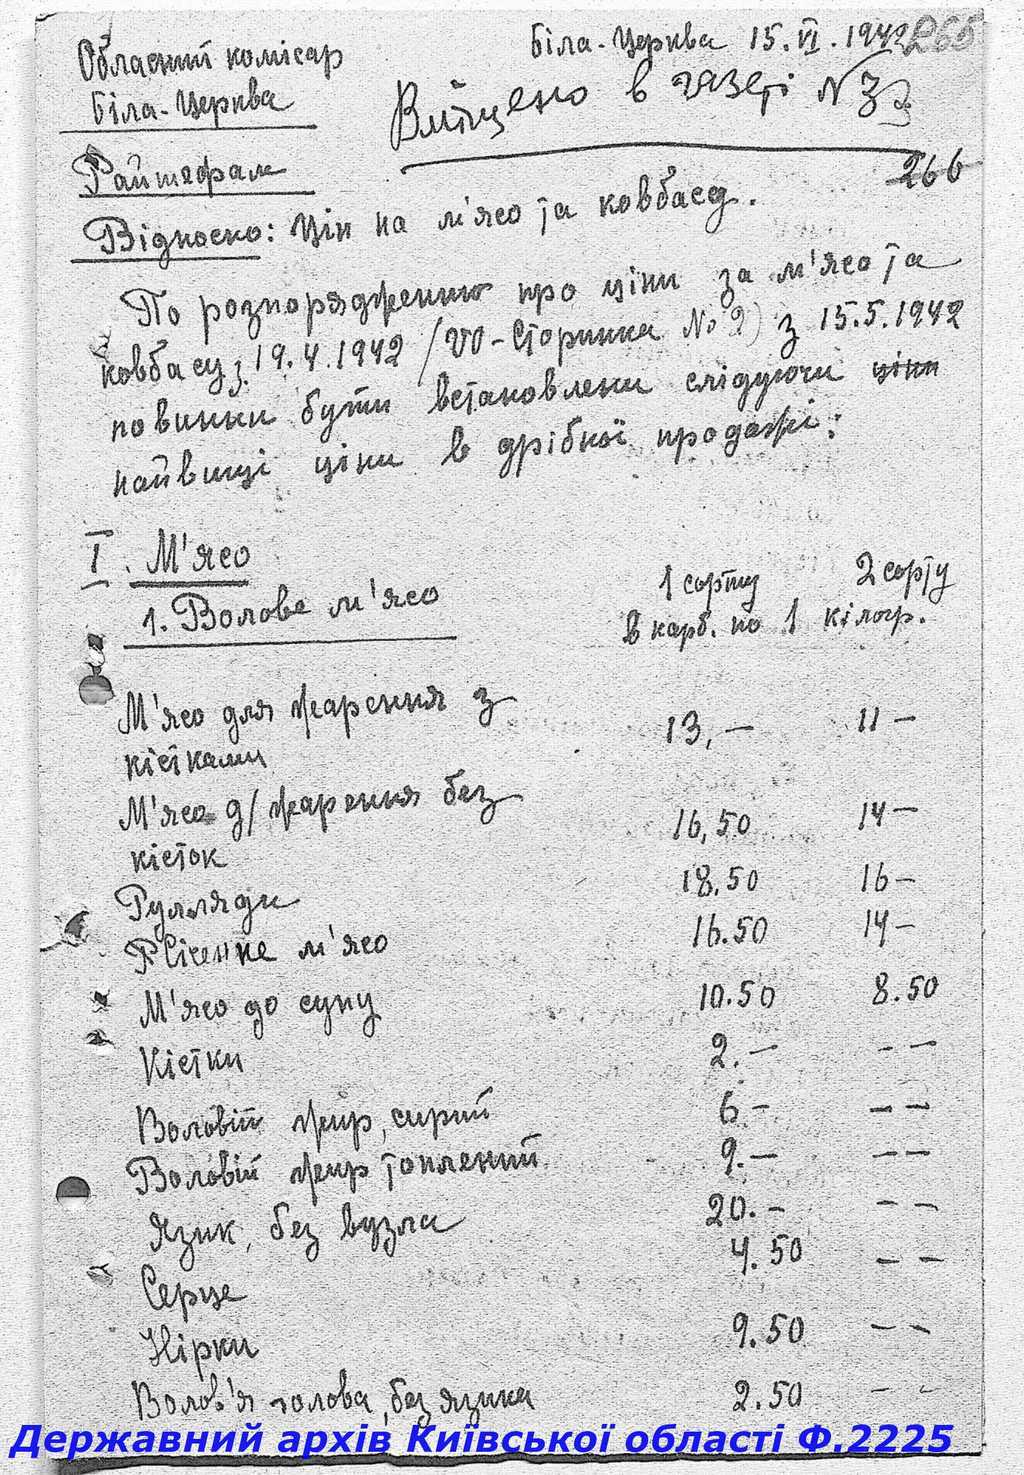 Біла-Церква 15.VI.1942
265
Обласний комісар
Біла-Церква
Вміщено в газеті № 33
266
Райтефаль
Відносно: Цін на м'ясо та ковбасу.
По розпорядженню про ціни за м'ясо та
ковбасу з 19.4.1942 /VO-Сторинка № 2) з 15.5.1942
повинни бути встановлени слідуючи ціни
найвищі ціни в дрібної продажі:
I. М'ясо
1. Волове м'ясо
1 сорту 2 сорту
в карб. по 1 кілогр.
М'ясо для жарення з
кістками 13,— 11—
М'ясо д/жарення без
кісток 16,50 14—
Рулляди 18.50 16—
Січенне м'ясо 16.50 14—
М'ясо до супу 10.50 8.50
Кістки 2.— — —
Воловій жир, сирий 6— — —
Воловій жир топлений 9.— — —
Язик, без вузла 20.— — —
Серце 4.50 — —
Нірки 9.50 — —
Волов'я голова, без язика 2.50 — —
Державний архів Київської області Ф.2225